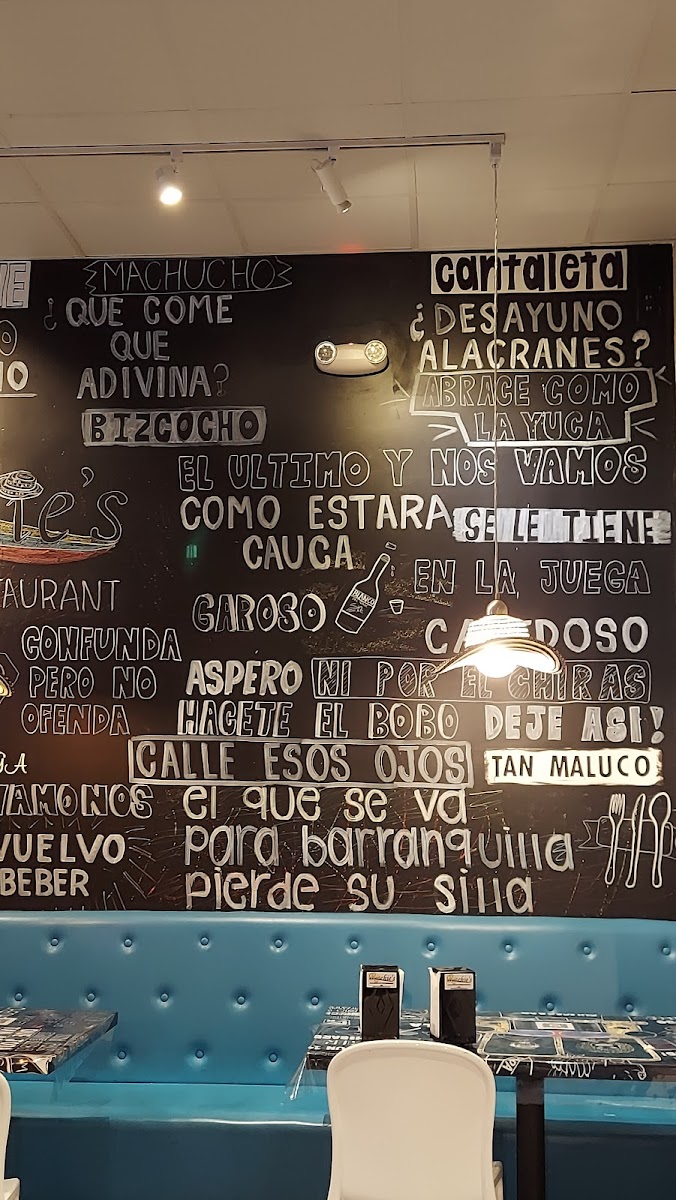 MACHUCHO
¿QUE COME
QUE
ADIVINA?
BIZCOCHO
cantaleta
¿DESAYUNO
ALACRANES?
ABRACE COMO
LA YUCA
EL ULTIMO Y NOS VAMOS
COMO ESTARA
CAUCA
SE LE TIENE
EN LA JUEGA
GAROSO
BLANCO
ie's
TAURANT
CONFUNDA
PERO NO
OFENDA
ASPERO
NI POR EL CHIRAS
HAGETE EL BOBO
DEJE ASI!
CALLE ESOS OJOS
TAN MALUCO
VAMONOS
VUELVO
BEBER
el que se va
para barranquilla
pierde su silla